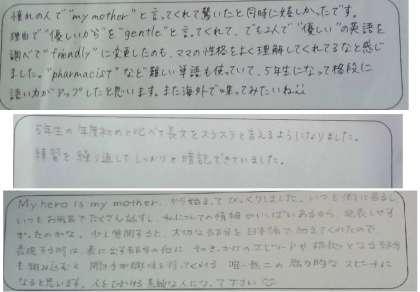 憧れの人で"my mother"と言ってくれて驚いたと同時に嬉しかったです。
理由で"優しいから"を"gentle"と言ってくれて、でも2人で"優しい"の英語を
調べて"friendly"に変更したのも、ママの性格をよく理解してくれてるなと感じ
ました。"pharmacist"など難しい単語も使っていて、5年生になって格段に
語い力がアップしたと思います。また海外で喋ってみたいね
5年生の年度初めと比べて長文をスラスラと言えるようになりました。
練習を繰り返して しっかりと暗記できていました。
My hero is my mother. から始まって びっくりしました。いつも
いつもお風呂でたくさん話すし、 についての情報がいっぱいあるから、発表しやす
かったのかな。少し質問すると、大切な部分を日本語で
表現する時は、表に出る部分の他に
も組み込むと 聞き手が興味を持ってくれる 唯一無二の魅力的な スピーチに
なると思います。 素敵な人になって下さい